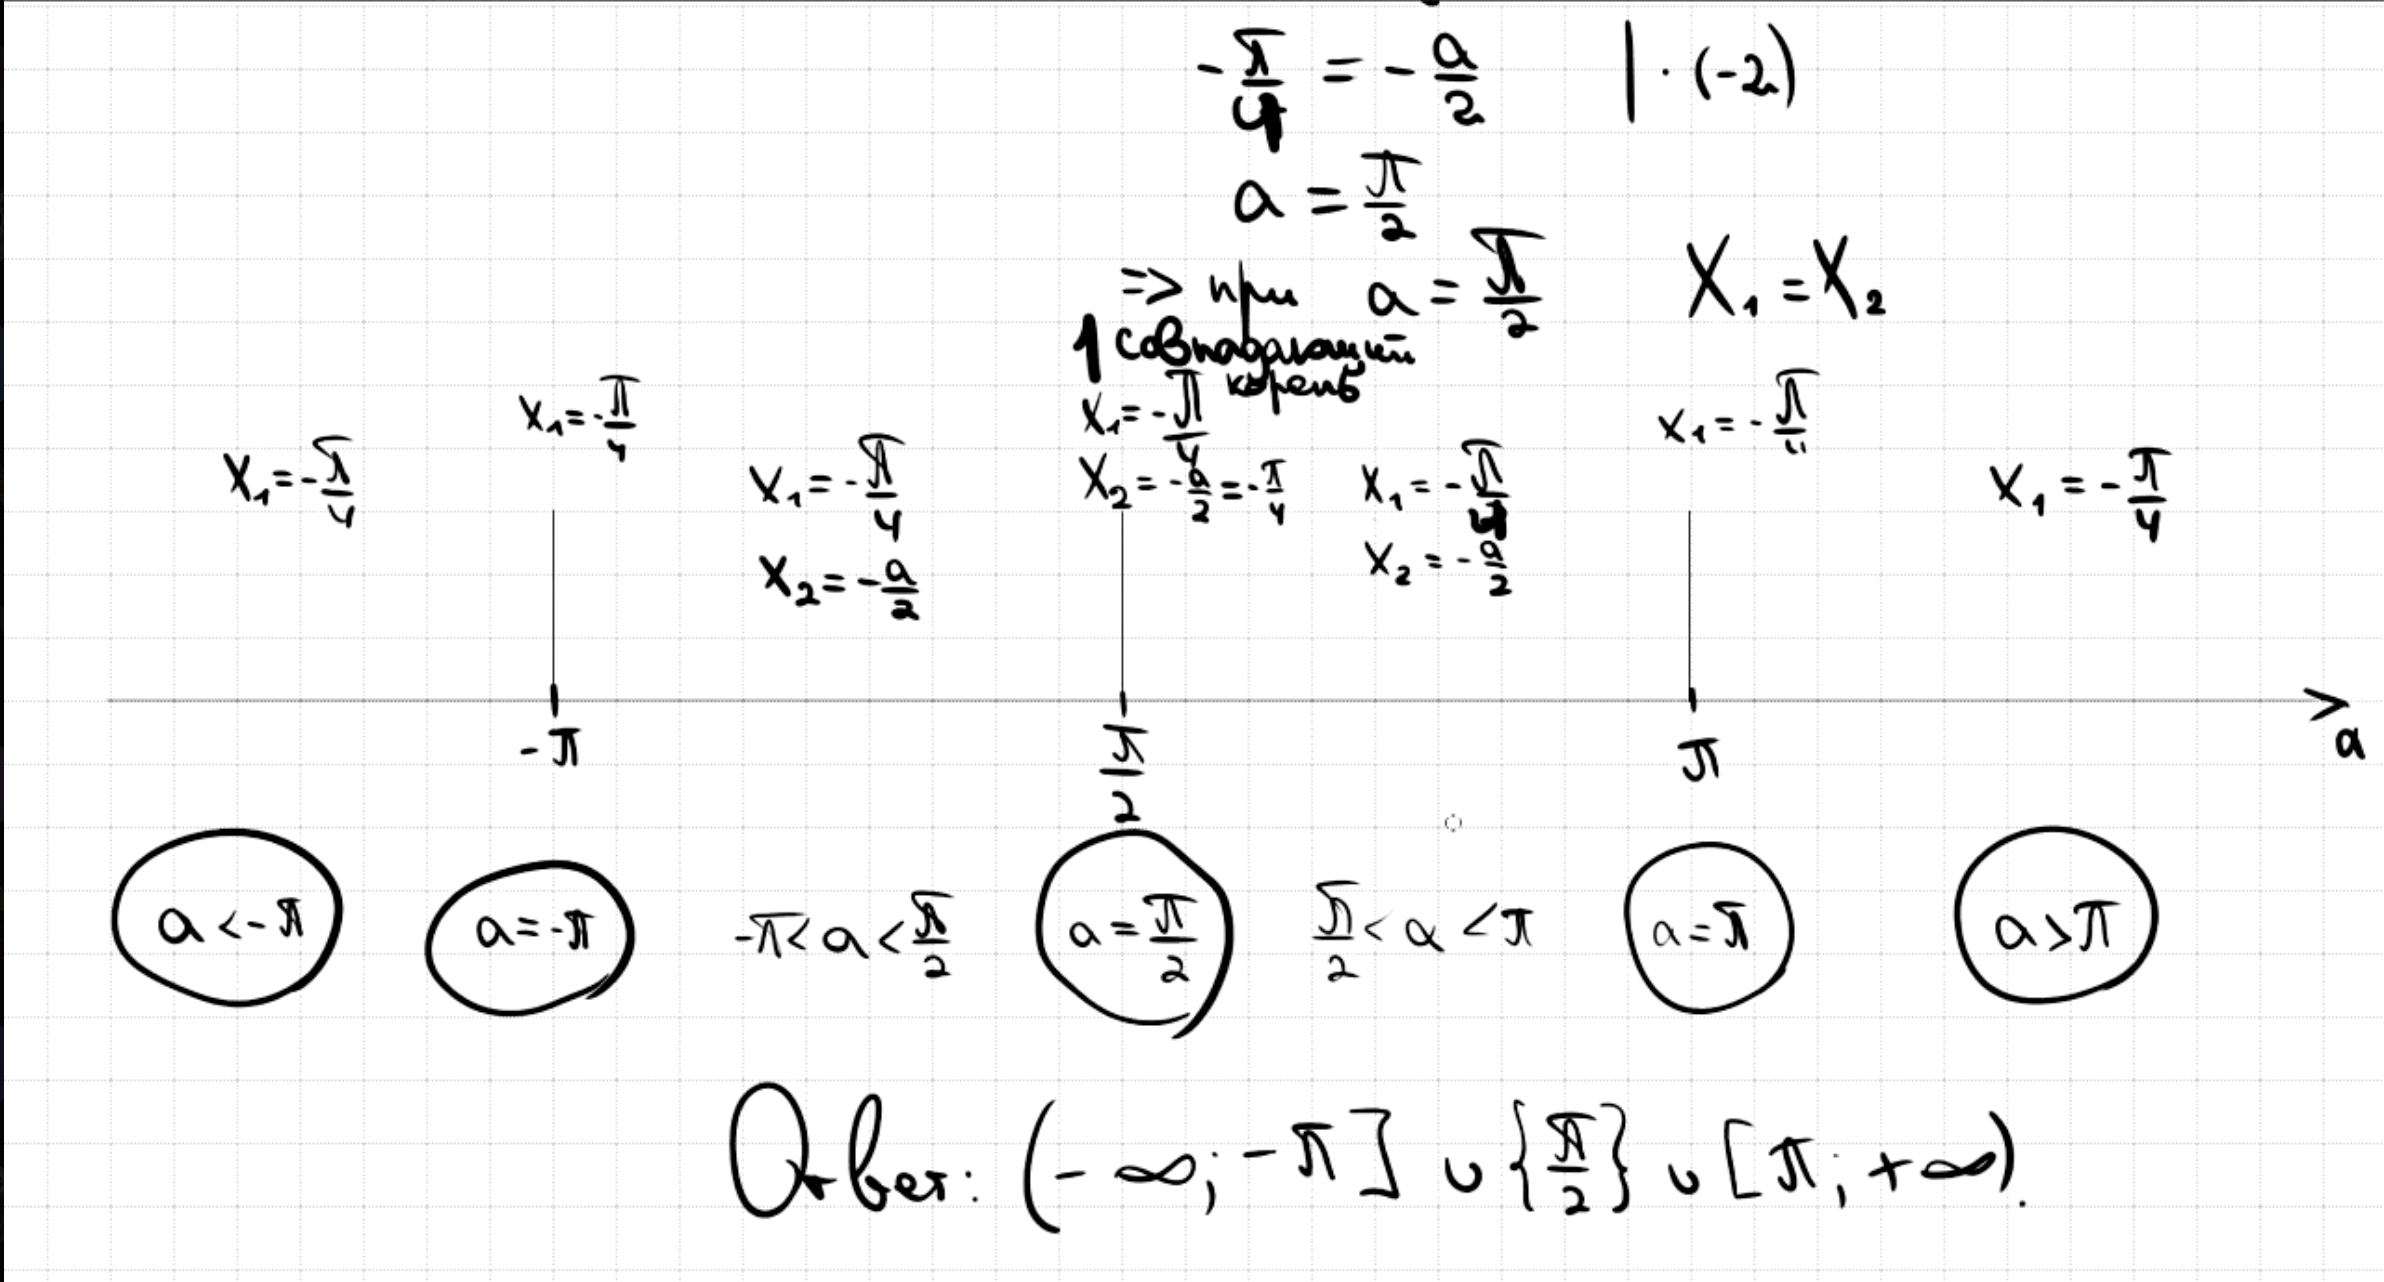 -π/4 = -a/2 | · (-2)
a = π/2
=> при a = π/2 X₁ = X₂
1 совпадающий
корень
X₁=-π/4
X₁=-π/4
X₁=-π/4
X₂=-a/2
X₁=-π/4
X₂=-a/2=-π/4
X₁=-π/4
X₂=-a/2
X₁=-π/4
X₁=-π/4
-π
π/2
π
a
a<-π
a=-π
-π<a<π/2
a=π/2
π/2<a<π
a=π
a>π
Ответ: (-∞; -π] ∪ {π/2} ∪ [π; +∞).